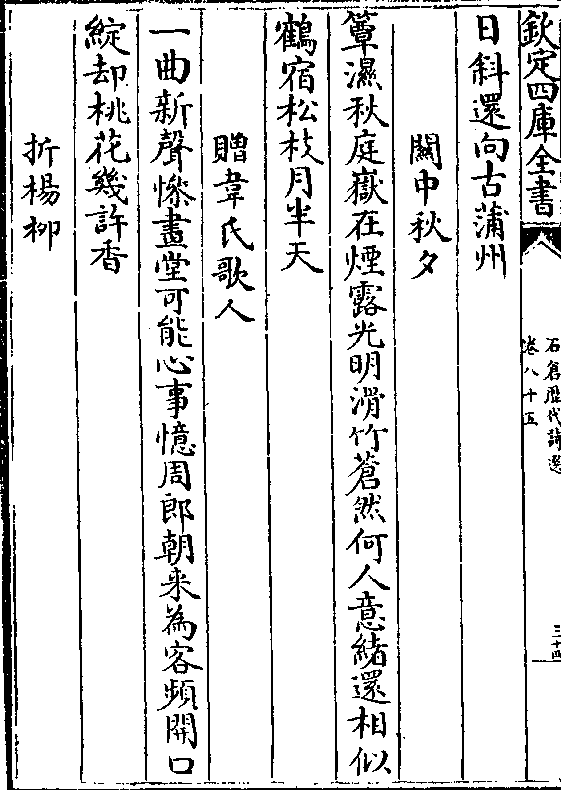 欽定四庫全書
石倉歷代詩選
卷八十五
三十四
日斜還向古蒲州
關中秋夕
簟濕秋庭嶽在煙露光明滑竹蒼然何人意緒還相似
鶴宿松枝月半天
贈韋氏歌人
一曲新聲慘畫堂可能心事憶周郎朝来為客頻開口
綻却桃花幾許香
折楊柳